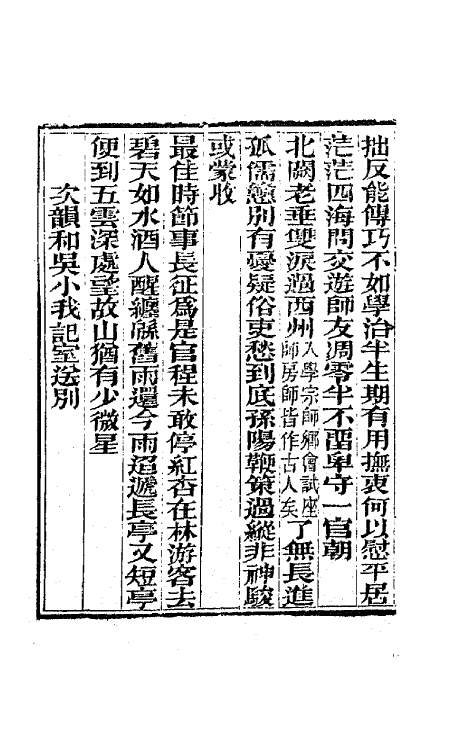 拙反能傳巧不如學治半生期有用撫衷何以慰平居
茫茫四海問交遊師友凋零半不留卑守一官朝
北闕老垂雙淚過西州入學宗師鄉會試座師房師皆作古人矣了無長進
孤儒戀別有憂疑俗吏愁到底孫陽鞭策過縱非神駿
或蒙收
最佳時節事長征為是官程未敢停紅杏在林游客去
碧天如水酒人醒纏緜舊雨還今雨迢遞長亭又短亭
便到五雲深處望故山猶有少微星
次韻和吳小我記室送別